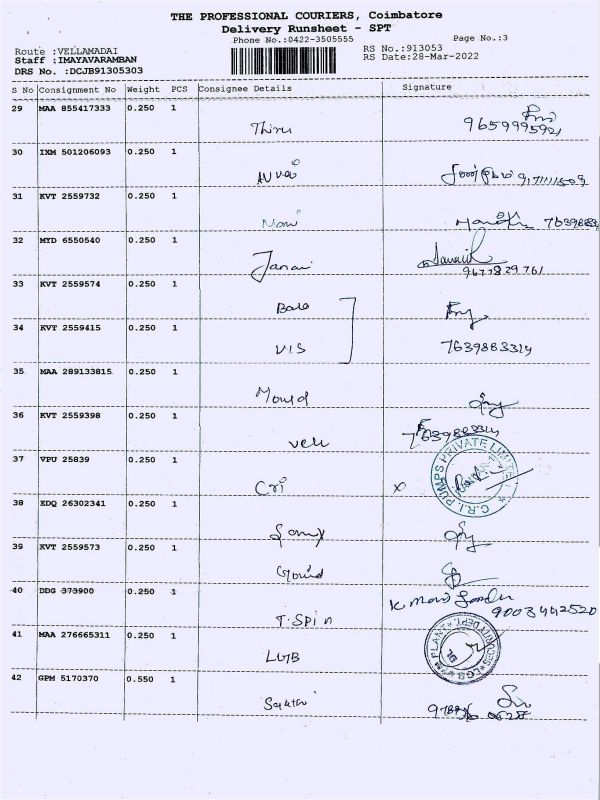 THE PROFESSIONAL COURIERS, Coimbatore
Delivery Runsheet - SPT
Phone No.:0422-3505555
Page No.:3
Route :VELLAMADAI
RS No.:913053
Staff :IMAYAVARAMBAN
RS Date:28-Mar-2022
DRS No. :DCJB91305303
S No Consignment No Weight PCS Consignee Details Signature
29 MAA 855417333 0.250 1
Thiru 9659995921
30 IXM 501206093 0.250 1
31 KVT 2559732 0.250 1
Mani 7639883
32 MTD 6550540 0.250 1
Janani
9677829761
33 KVT 2559574 0.250 1
Bala
34 KVT 2559415 0.250 1
VIS 7639883314
35 MAA 289133815 0.250 1
Mould
36 KVT 2559398 0.250 1
7639883314
velu
37 VPU 25839 0.250 1
Cri x
C.R.I. PUMPS PRIVATE LIMITED
38 EDQ 26302341 0.250 1
39 KVT 2559573 0.250 1
40 DDG 373900 0.250 1
T.Spin 9003442520
41 MAA 276665311 0.250 1
LGB
42 GPM 5170370 0.550 1
Sakthi